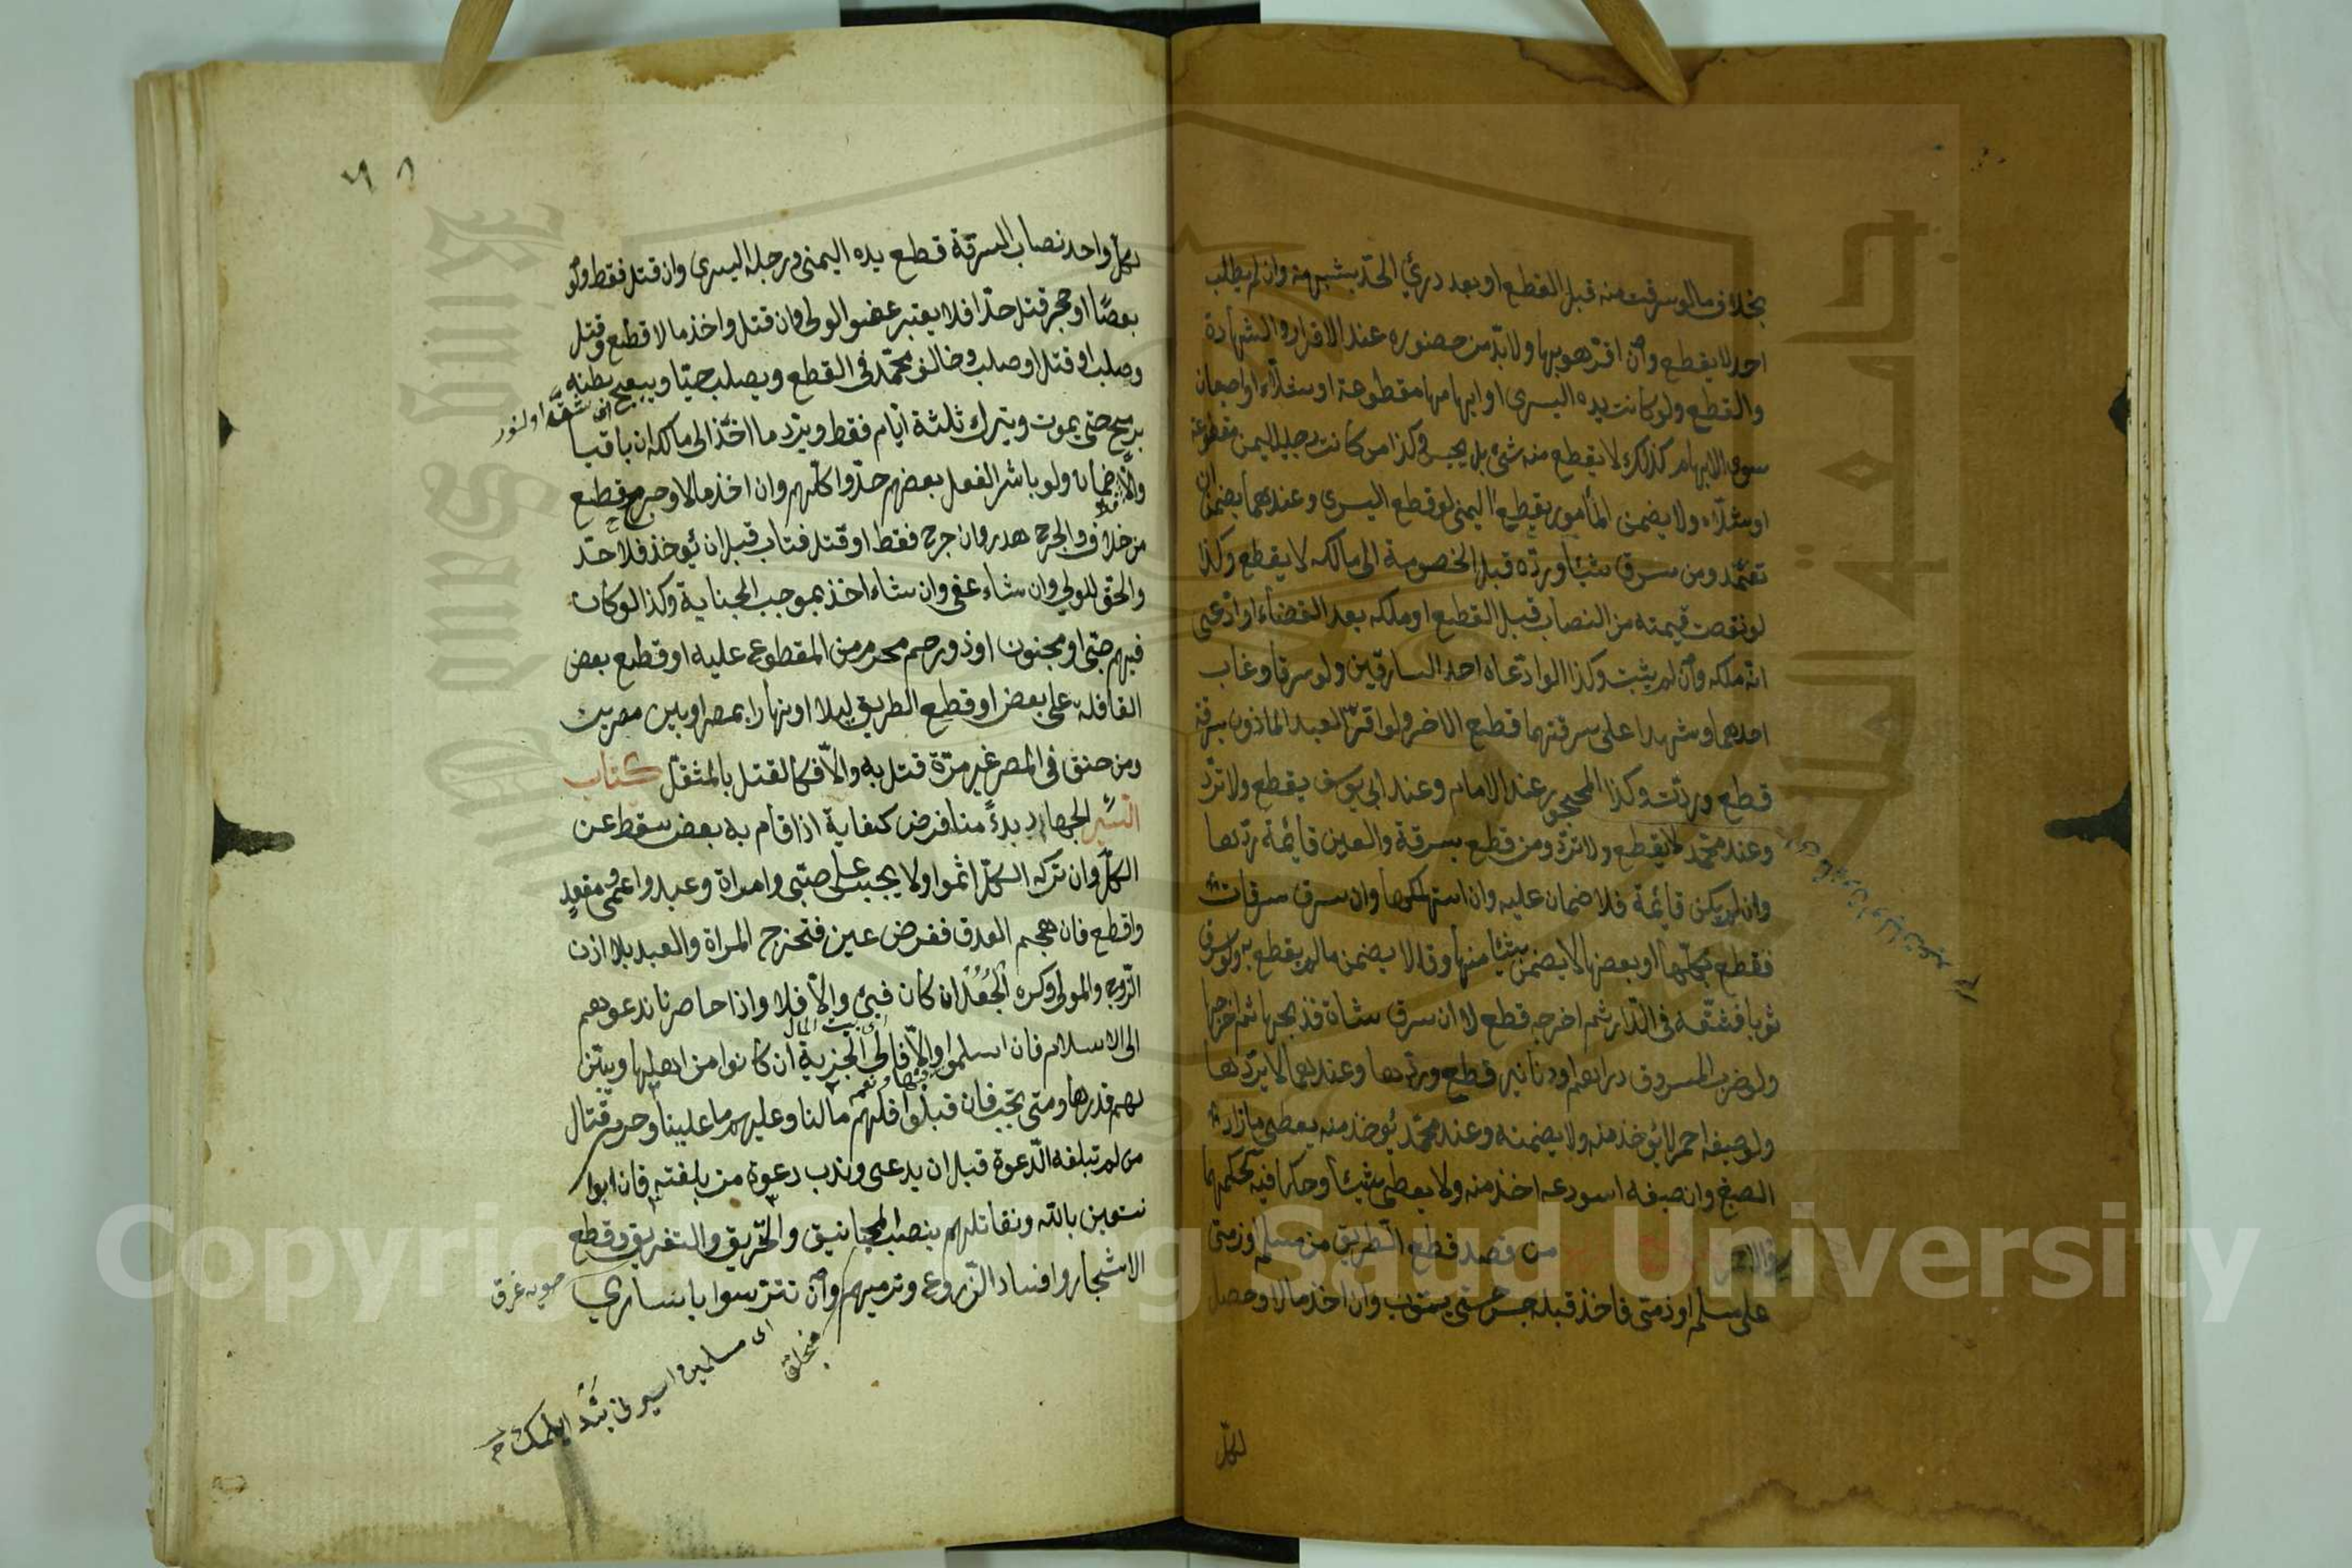 بخلاف ما لو سرقت منه قبل القطع او بعد درئ الحد بشبهة وان لم يطلب
احد لا يقطع وان اقر هو بها ولا بد من حضوره عند الاقرار والشهادة
والقطع ولو كانت يده اليسرى او ابهامها مقطوعة او شلاء او اصبعان
سوى الابهام كذلك لا يقطع منه شئ بل يحبس وكذا من كانت رجله اليمنى مقطوعة
او شلاء ولا يضمن المأمور بقطع اليمنى لو قطع اليسرى وعندهما يضمن ان
تعمد ومن سرق شيئا ورده قبل الخصومة الى مالكه لا يقطع وكذا
لو نقصت قيمته من النصاب قبل القطع او ملكه بعد القضاء او ادعى
انه ملكه وان لم يثبت وكذا لو ادعاه احد السارقين ولو سرقا وغاب
احدهما وشهدا على سرقتهما قطع الاخر ولو اقر العبد المأذون بسرقة
قطع وردت وكذا المحجور عند الامام وعند ابي يوسف يقطع ولا ترد
وعند محمد لا يقطع ولا ترد ومن قطع بسرقة والعين قائمة ردها
وان لم يكن قائمة فلا ضمان عليه وان استهلكها وان سرق سرقات
فقطع بكلها او بعضها لا يضمن شيئا منها وقالا يضمن ما لم يقطع به ولو سرق
ثوبا فشقه في الدار ثم اخرجه قطع لا ان سرق شاة فذبحها ثم اخرجها
ولو ضرب المسروق دراهم او دنانير قطع وردها وعندهما لا يردها
ولو صبغه احمر لا يؤخذ منه ولا يضمنه وعند محمد يؤخذ منه يعطى ما زاد
الصبغ وان صبغه اسود عه اخذ منه ولا يعطى شيئا وحكما فيه كحكمهما
من قصد قطع الطريق من مسلم او ذمى
على مسلم او ذمى فاخذ قبله حبس حتى يتوب وان اخذ مالا وحصل
لكل
٩٨
لكل واحد نصاب السرقة قطع يده اليمنى ورجله اليسرى وان قتل فقط ولو
بعصًا او حجر قتل حدّا فلا يعتبر عفو الولى وان قتل واخذ مالا قطع وقتل
وصلب او قتل او صلب وخالف محمّد فى القطع ويصلب حيّا ويبعج بطنه
برمح حتى يموت ويترك ثلثة ايّام فقط ويردّ ما اخذ الى مالكه ان باقيا
والّا فلا ضمان ولو باشر الفعل بعضهم حدّوا كلّهم وان اخذ مالا وجرح قطع
من خلاف والجرح هدر وان جرح فقط او قتل فتاب قبل ان يؤخذ فلا حدّ
والحق للولي وان شاء عفى وان شاء اخذ بموجب الجناية وكذا لو كان
فيهم صبى او مجنون او ذو رحم محرم من المقطوع عليه او قطع بعض
القافلة على بعض او قطع الطريق ليلا او نهارا بمصر او بين مصرين
ومن خنق فى المصر غير مرّة قتل به والّا فكالقتل بالمثقل كتاب
السّير الجهاد بدءً منا فرض كفاية اذا قام به بعض سقط عن
الكلّ وان تركه الكلّ اثموا ولا يجب على صبى وامراة وعبد واعمى ومقعد
واقطع فان هجم العدو ففرض عين فتخرج المراة والعبد بلا اذن
الزّوج والمولى وكره الجُعْل ان كان فيئ والّا فلا واذا حاصرنا ندعوهم
الى الاسلام فان اسلموا والّا فالى الجزية ان كانوا من اهلها ويبيّن
لهم قدرها ومتى تجب فان قبلوا فلهم ما لنا وعليهم ما علينا وحرم قتال
من لم تبلغه الدّعوة قبل ان يدعى وندب دعوة من بلغته فان ابوا
نستعين بالله ونقاتلهم بنصب المجانيق والتّحريق والتغريق وقطع
الاشجار وافساد الزّروع ونرميهم وان تترّسوا باسارى
اى شقه
اى بيت المال
صويه غرق
منجلق
اى مسلمين
Copyright © King Saud University
King Saud University
جامعة الملك سعود